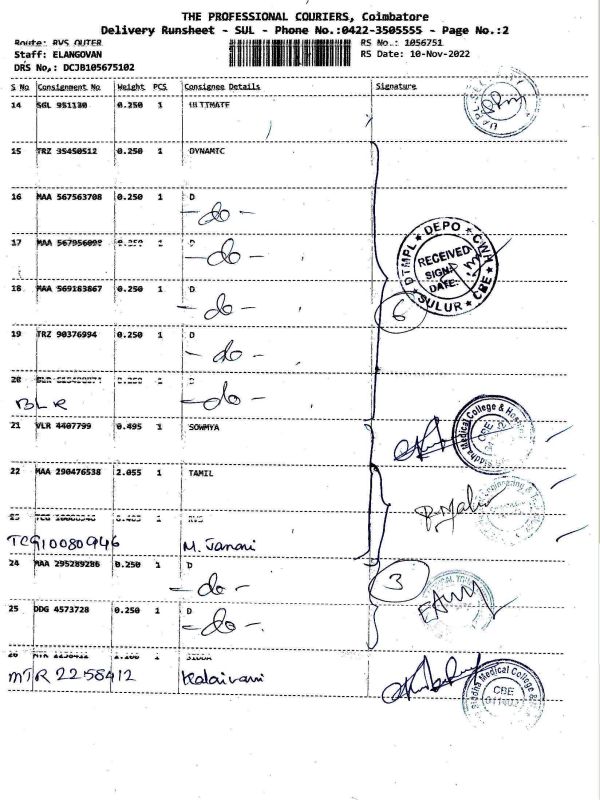 THE PROFESSIONAL COURIERS, Coimbatore
Delivery Runsheet - SUL - Phone No.:0422-3505555 - Page No.:2
Route: RVS OUTER
RS No.: 1056751
Staff: ELANGOVAN
RS Date: 10-Nov-2022
DRS No,: DCJB105675102
S No Consignment No Weight PCS Consignee Details Signature
14 SGL 951130 0.250 1 ULTIMATE
15 TRZ 35450512 0.250 1 DYNAMIC
16 MAA 567563708 0.250 1 D
- do -
17 MAA 567956098 0.250 1 D
- do -
DTMPL ★ DEPO ★ CWA ★ CBE ★ SULUR
RECEIVED
SIGN:
DATE:
18 MAA 569183867 0.250 1 D
- do -
6
19 TRZ 90376994 0.250 1 D
- do -
20 D
- do -
BLR
21 VLR 4407799 0.495 1 SOWMYA
Siddha Medical College &
CBE
22 MAA 290476538 2.055 1 TAMIL
23 RVS
TCG10080946 M. Janani
24 MAA 295289286 0.250 1 D
- do -
3
25 DDG 4573728 0.250 1 D
- do -
26 MTR 2258412 1.100 1 SIDDA
MTR 2258412 Kalaivani
Siddha Medical College &
CBE